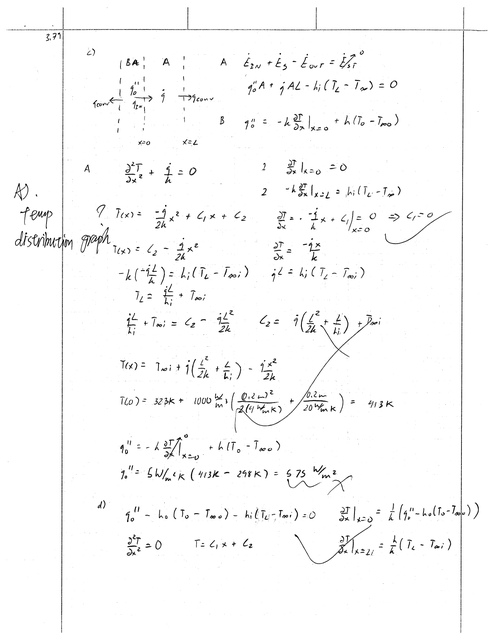 3.79
c)
BA A A Ė_IN + Ė_g - Ė_OUT = Ė_ST 0
q_conv ← q_0" q̇ → q_conv q_0"A + q̇AL - h_i(T_L - T_∞) = 0
x=0 x=L B q_0" = -k ∂T/∂x|_{x=0} + h(T_0 - T_∞0)
A ∂²T/∂x² + q̇/k = 0 1 ∂T/∂x|_{x=0} = 0
2 -k ∂T/∂x|_{x=L} = h_i(T_L - T_∞)
A).
Temp
distribution graph
? T(x) = -q̇/2k x² + C_1 x + C_2 ∂T/∂x = -q̇/k x + C_1|_{x=0} = 0 ⇒ C_1 = 0
T(x) = C_2 - q̇/2k x² ∂T/∂x = -q̇x/k
-k(-q̇L/k) = h_i(T_L - T_∞i) q̇L = h_i(T_L - T_∞i)
T_L = q̇L/h_i + T_∞i
q̇L/h_i + T_∞i = C_2 - q̇L²/2k C_2 = q̇(L²/2k + L/h_i) + T_∞i
T(x) = T_∞i + q̇(L²/2k + L/h_i) - q̇x²/2k
T(0) = 323K + 1000 W/m³ ((0.2m)²/2(4 W/mK) + 0.2m/20 W/m²K) = 413K
q_0" = -k ∂T/∂x|_{x=0} 0 + h(T_0 - T_∞0)
q_0" = 5 W/m²K (413K - 298K) = 575 W/m²
d) q_0" - h_0(T_0 - T_∞0) - h_i(T_L - T_∞i) = 0 ∂T/∂x|_{x=0} = 1/k (q_0" - h_0(T_0 - T_∞0))
∂²T/∂x² = 0 T = C_1 x + C_2 ∂T/∂x|_{x=L} = h/k (T_L - T_∞i)